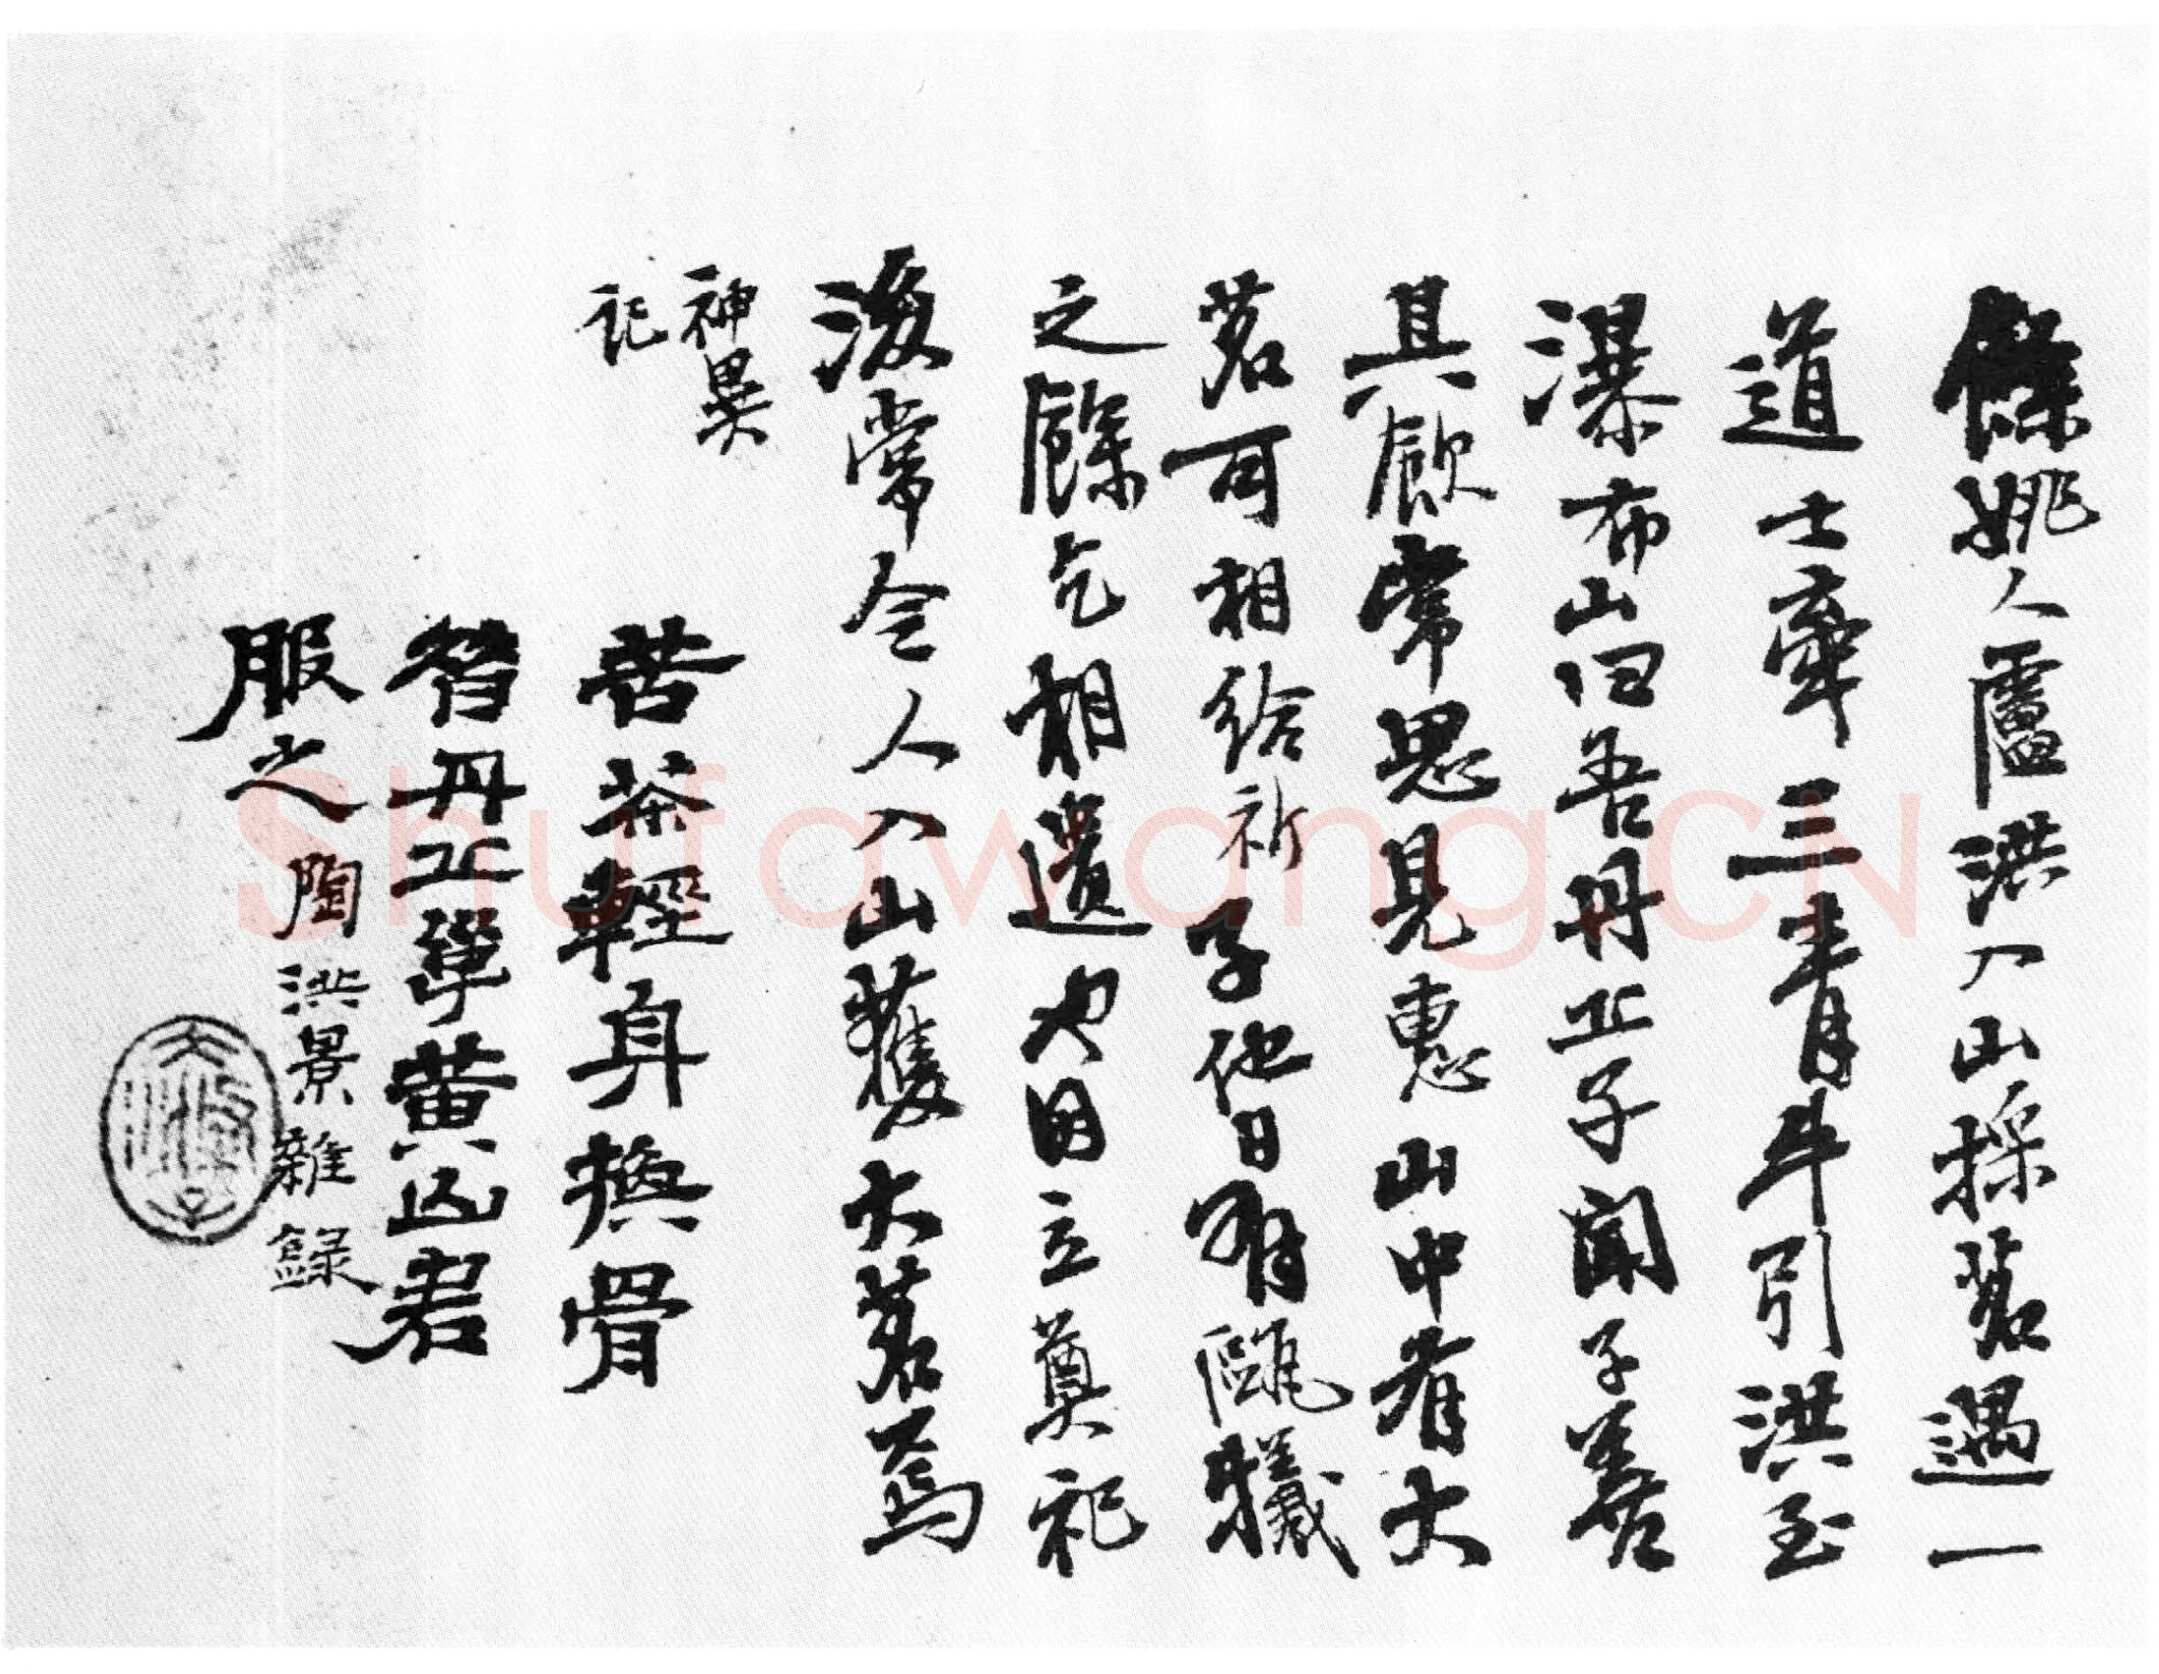 餘姚人盧洪入山採茗遇一
道士牽三青牛引洪至
瀑布山曰吾丹丘子聞子善
具飲常思見惠山中有大
茗可相給祈子他日有甌犧
之餘乞相遺也因立奠祀
後常令人入山獲大茗焉
神異
記
苦茶輕身換骨
昔丹丘單黃山君
服之 陶洪景雜錄
Shufawang.CN